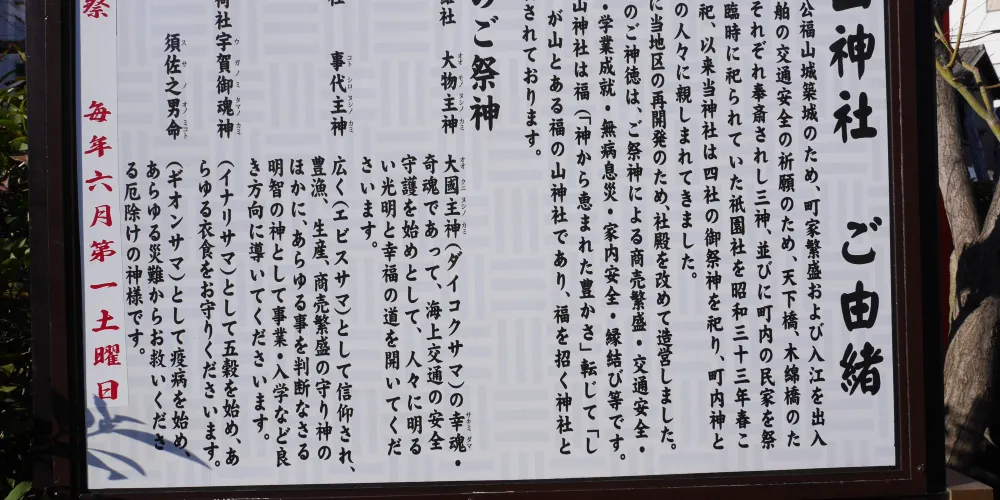 山神社 ご由緒
公福山城築城のため、町家繁盛および入江を出入
舶の交通安全の祈願のため、天下橋、木綿橋のた
それぞれ奉斎されし三神、並びに町内の民家を祭
臨時に祀られていた祇園社を昭和三十三年春こ
祀、以来当神社は四社の御祭神を祀り、町内神と
の人々に親しまれてきました。
に当地区の再開発のため、社殿を改めて造営しました。
のご神徳は、ご祭神による商売繁盛・交通安全・
・学業成就・無病息災・家内安全・縁結び等です。
山神社は福(「神から恵まれた豊かさ」転じて「し
が山とある福の山神社であり、福を招く神社と
されております。
のご祭神
羅社 大物主神 オオモノヌシノカミ
大國主神(ダイコクサマ)の幸魂・ オオクニヌシノカミ サキミダマ
奇魂であって、海上交通の安全
守護を始めとして、人々に明る
い光明と幸福の道を開いてくだ
さいます。
社 事代主神 コトシロヌシノカミ
広く(エビスサマ)として信仰され、
豊漁、生産、商売繁盛の守り神の
ほかに、あらゆる事を判断なさる
明智の神として事業・入学など良
き方向に導いてくださいます。
荷社 宇賀御魂神 ウガノミタマノカミ
(イナリサマ)として五穀を始め、あ
らゆる衣食をお守りくださいます。
須佐之男命 スサノオノミコト
(ギオンサマ)として疫病を始め、
あらゆる災難からお救いくださ
る厄除けの神様です。
祭 毎年六月第一土曜日